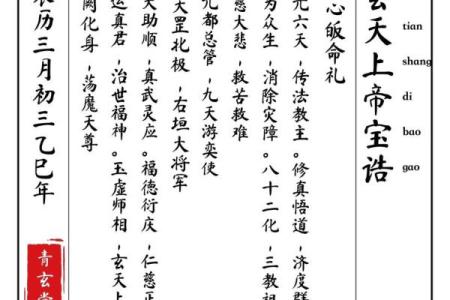 玄天上帝宝诰
tian
shang
di
bao
gao
心皈命礼
元六天，传法教主。修真悟道，济度群
为众生，消除灾障。八十二化，三教祖
慈大悲，救苦救难
元都总管，九天游奕使
天罡北极，右垣大将军
天助顺，真武灵应。福德衍庆，仁慈正
运真君，治世福神。玉虚师相，玄天上
阙化身，荡魔天尊
农历三月初三乙巳年
青玄